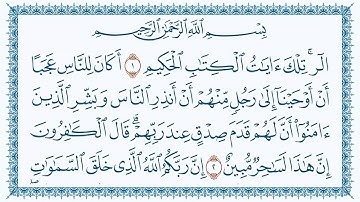 بِسْمِ ٱللَّهِ ٱلرَّحْمَٰنِ ٱلرَّحِيمِ
الٓر ۚ تِلْكَ ءَايَٰتُ ٱلْكِتَٰبِ ٱلْحَكِيمِ ۝١ أَكَانَ لِلنَّاسِ عَجَبًا
أَنْ أَوْحَيْنَآ إِلَىٰ رَجُلٍ مِّنْهُمْ أَنْ أَنذِرِ ٱلنَّاسَ وَبَشِّرِ ٱلَّذِينَ
ءَامَنُوٓا۟ أَنَّ لَهُمْ قَدَمَ صِدْقٍ عِندَ رَبِّهِمْ ۗ قَالَ ٱلْكَٰفِرُونَ
إِنَّ هَٰذَا لَسَٰحِرٌ مُّبِينٌ ۝٢ إِنَّ رَبَّكُمُ ٱللَّهُ ٱلَّذِى خَلَقَ ٱلسَّمَٰوَٰتِ